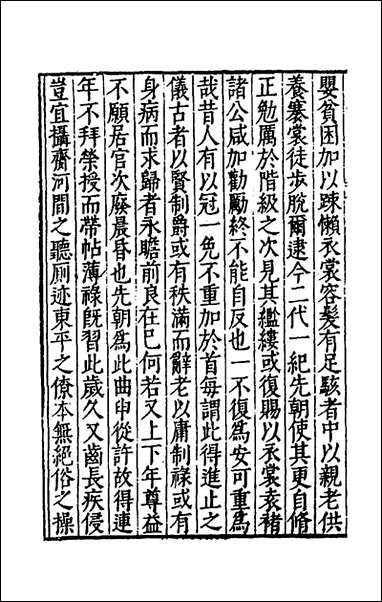 嬰貧困加以踈懶衣裳容髮有足駭者中以親老供
養褰裳徒步脫爾逮今二代一紀先朝使其更自脩
正勉厲於階級之次見其繿縷或復賜以衣裳袁褚
諸公咸加勸勵終不能自反也一不復爲安可重爲
哉昔人有以冠一免不重加於首每謂此得進止之
儀古者以賢制爵或有秩滿而辭老以庸制祿或有
身病而求歸者永瞻前良在已何若又上下年尊益
不願居官次廢晨昏也先朝爲此曲申從許故得連
年不拜榮授而帶帖薄祿旣習此歲久又齒長疾侵
豈宜攝齋河間之聽厠迹東平之僚本無絕俗之操